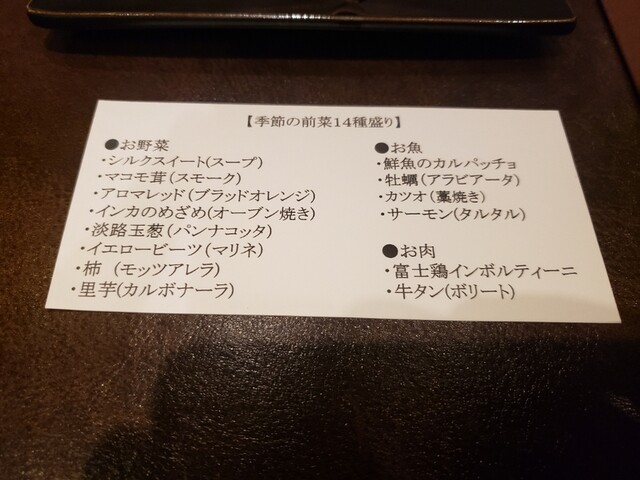 【季節の前菜14種盛り】
●お野菜
・シルクスイート(スープ)
・マコモ茸(スモーク)
・アロマレッド(ブラッドオレンジ)
・インカのめざめ(オーブン焼き)
・淡路玉葱(パンナコッタ)
・イエロービーツ(マリネ)
・柿 (モッツアレラ)
・里芋(カルボナーラ)
●お魚
・鮮魚のカルパッチョ
・牡蠣(アラビアータ)
・カツオ(藁焼き)
・サーモン(タルタル)
●お肉
・富士鶏インボルティーニ
・牛タン(ボリート)